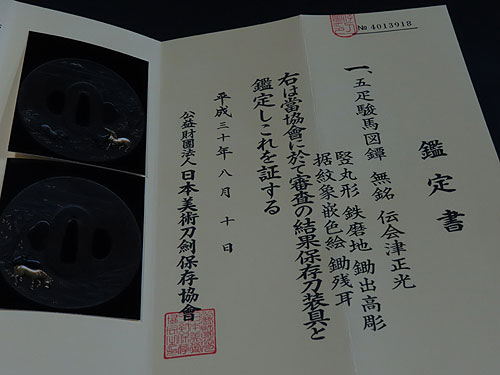 № 4013918
鑑定書
一、五疋駿馬図鐔 無銘 伝会津正光
竪丸形 鉄磨地 鋤出高彫
据紋象嵌色絵 鋤残耳
右は當協會に於て審査の結果保存刀装具と
鑑定しこれを証する
平成三十年八月十日
公益財團法人日本美術刀劍保存協會